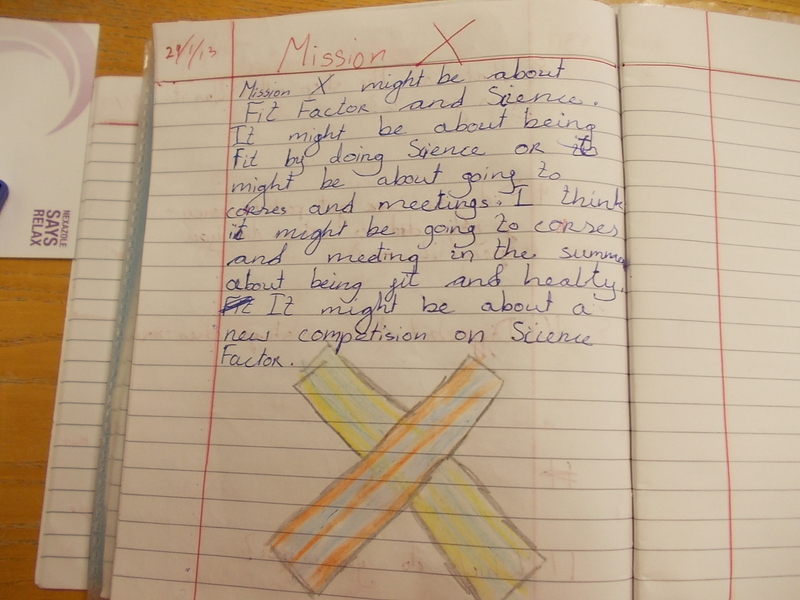 29/1/13 Mission X
Mission X might be about
Fit Factor and Science.
It might be about being
fit by doing Science or it
might be about going to
corses and meetings. I think
it might be going to corses
and meeting in the summer
about being fit and healty.
It might be about a
new competision on Science
Factor.
NEXAZOLE
SAYS
RELAX